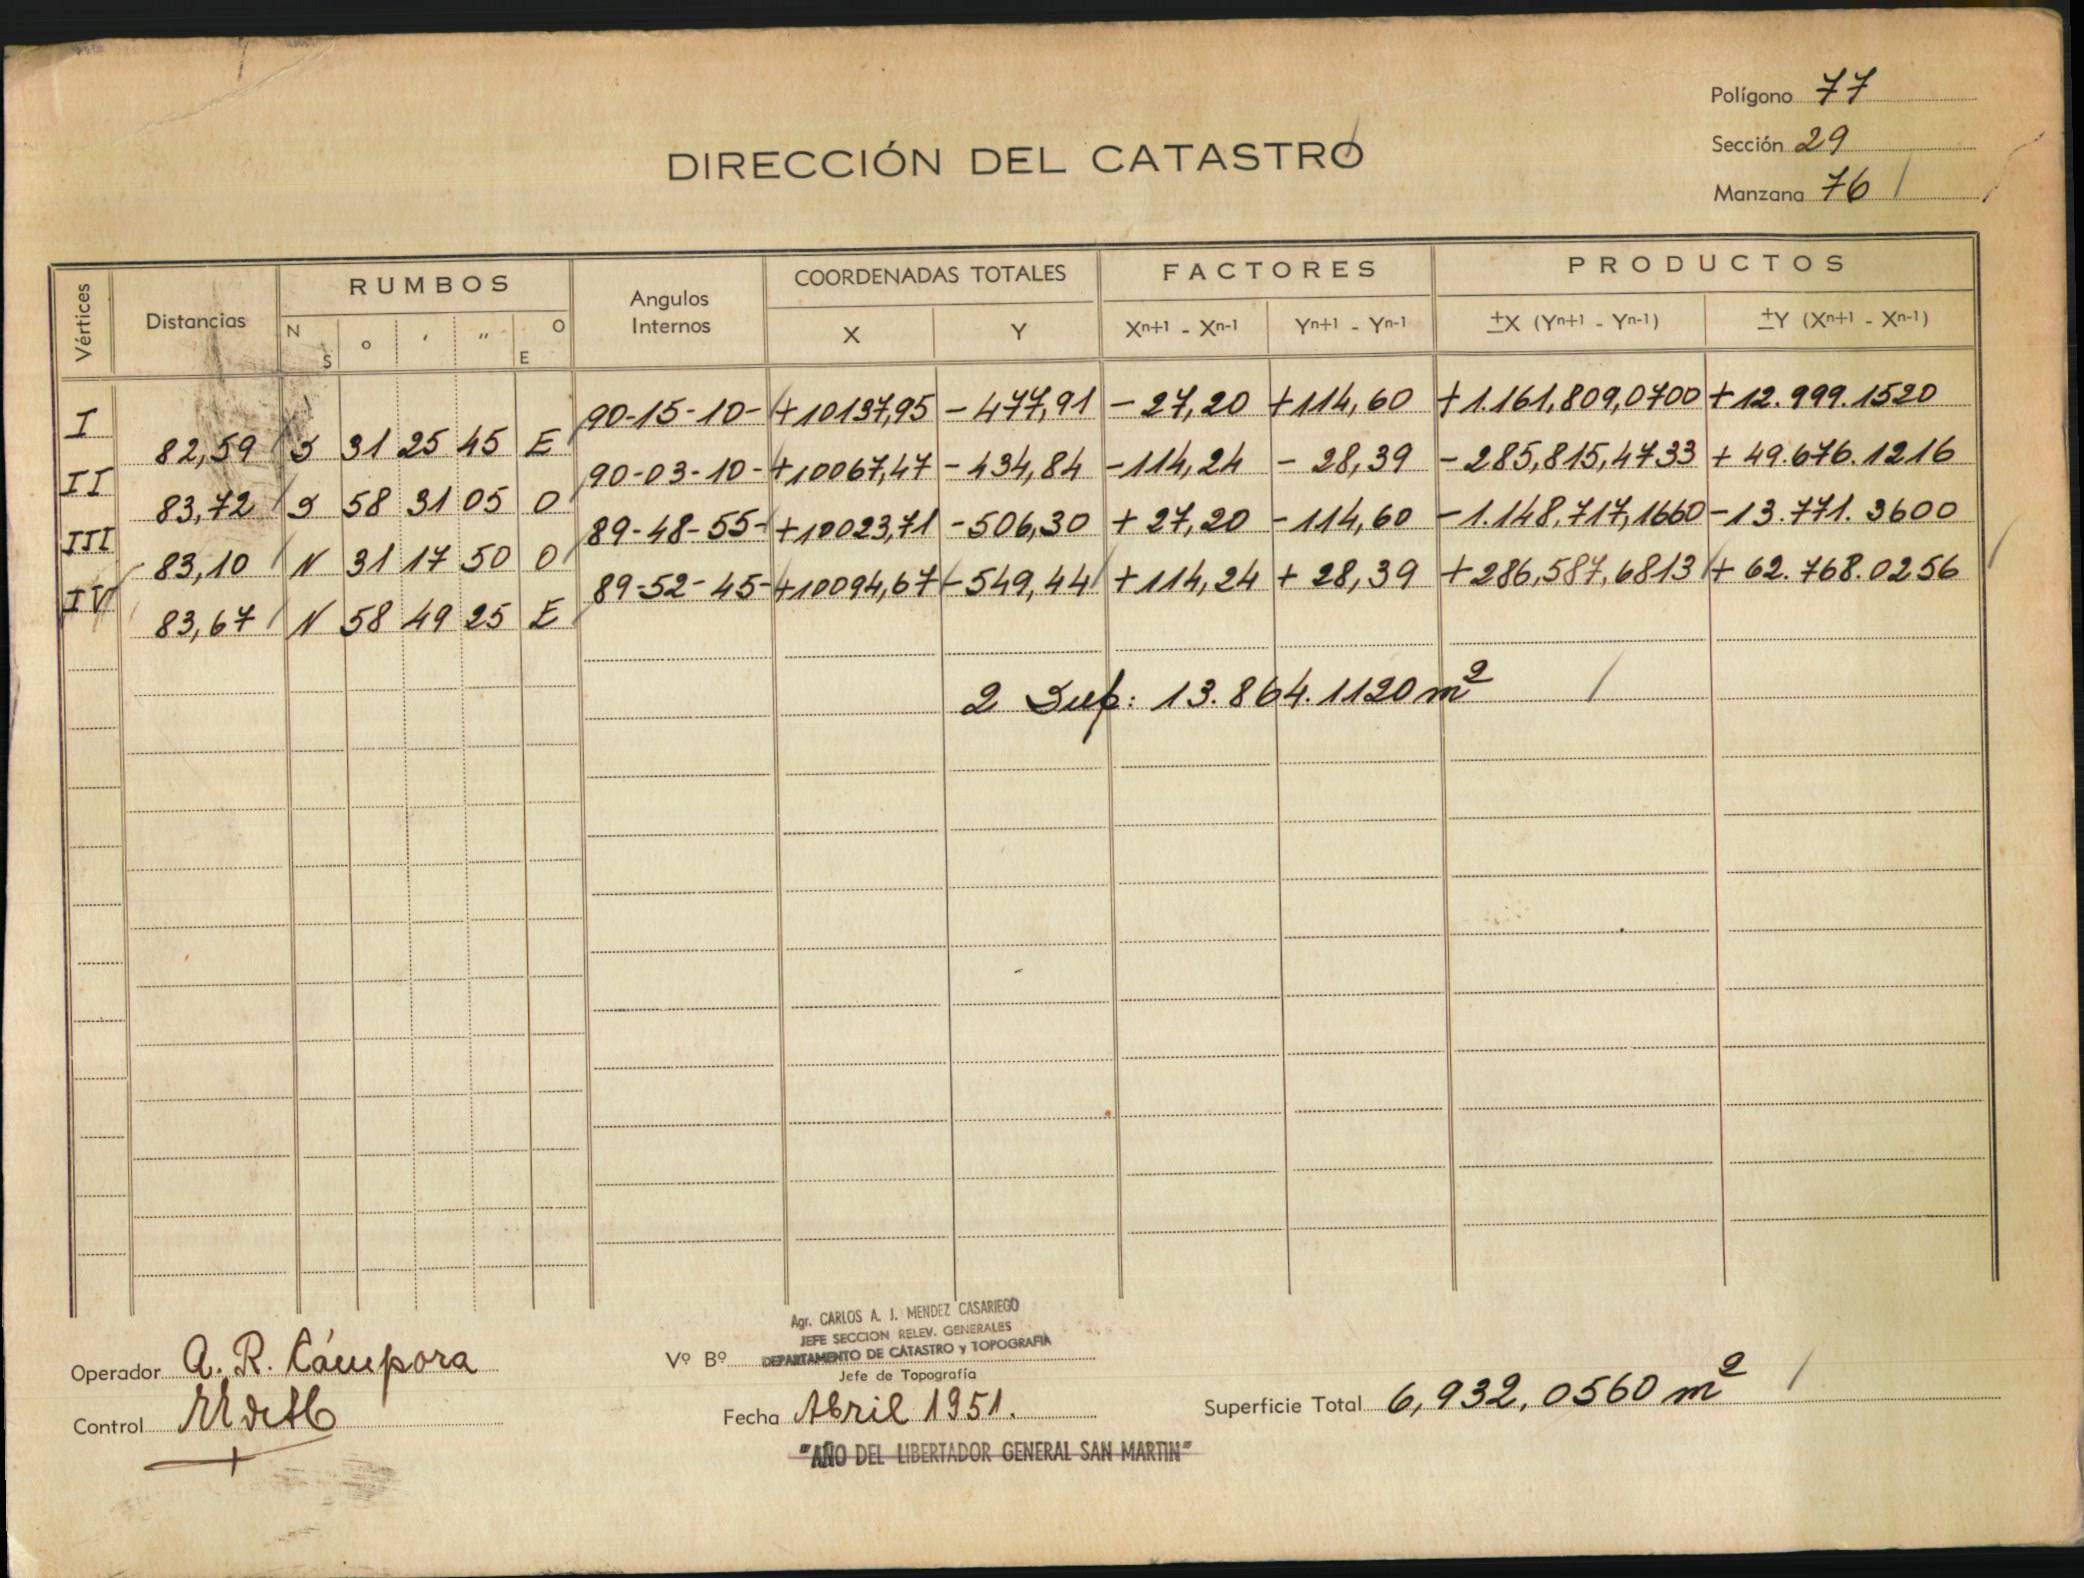 Polígono 77
Sección 29
Manzana 76
DIRECCIÓN DEL CATASTRO
Vértices Distancias RUMBOS N S o ' " O E Angulos Internos COORDENADAS TOTALES X Y FACTORES Xn+1 - Xn-1 Yn+1 - Yn-1 PRODUCTOS ±X (Yn+1 - Yn-1) ±Y (Xn+1 - Xn-1)
I 90-15-10- +10137,95 -477,91 -27,20 +114,60 +1.161,809,0700 +12.999.1520
82,59 S 31 25 45 E
II 90-03-10- +10067,47 -434,84 -114,24 -28,39 -285,815,4733 +49.676.1216
83,72 S 58 31 05 O
III 89-48-55- +10023,71 -506,30 +27,20 -114,60 -1.148,717,1660 -13.771.3600
83,10 N 31 17 50 O
IV 89-52-45- +10094,67 -549,44 +114,24 +28,39 +286,587,6813 +62.768.0256
83,67 N 58 49 25 E
2 Sup: 13.864.1120 m²
Operador A. R. Cámpora
Control
Vº Bº
Agr. CARLOS A. J. MENDEZ CASARIEGO
JEFE SECCION RELEV. GENERALES
DEPARTAMENTO DE CATASTRO y TOPOGRAFIA
Jefe de Topografía
Fecha Abril 1951.
"AÑO DEL LIBERTADOR GENERAL SAN MARTIN"
Superficie Total 6,932,0560 m²